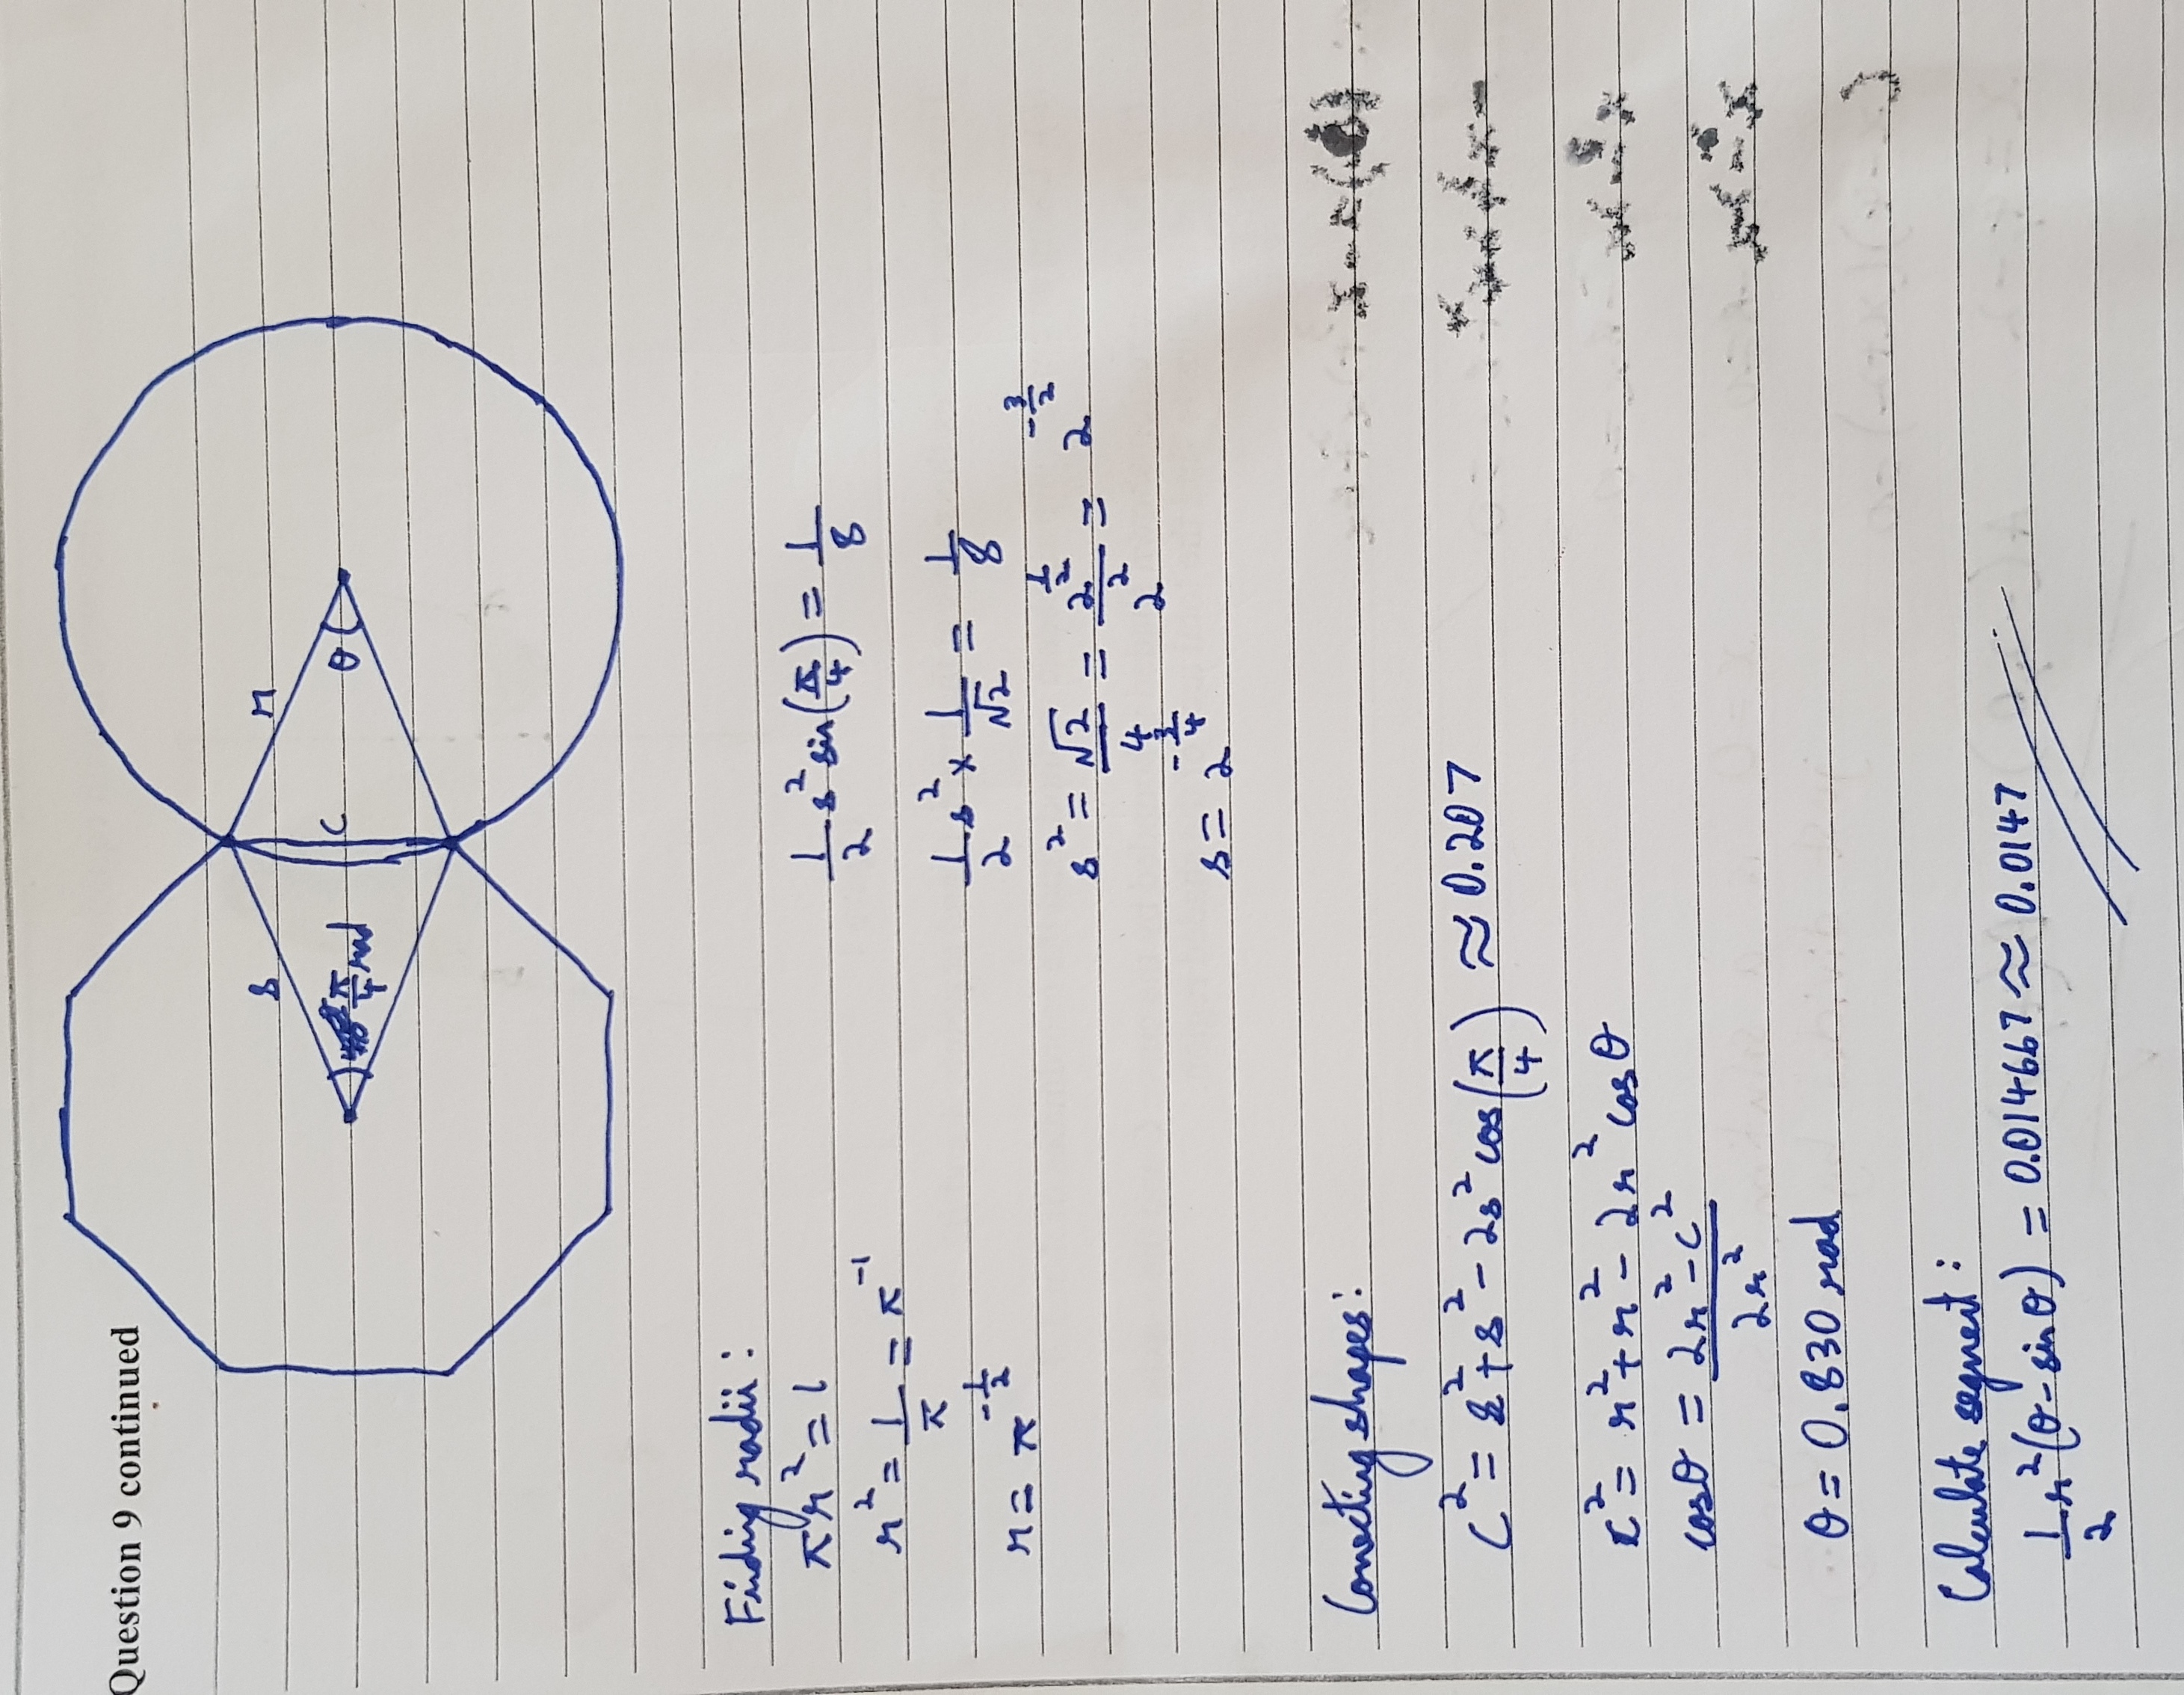 Question 9 continued
s
r
π/4 rad
C
θ
Finding radii :
πr² = 1
r² = 1/π = π⁻¹
r = π^(-1/2)
1/2 s² sin(π/4) = 1/8
1/2 s² × 1/√2 = 1/8
s² = √2/4 = 2^(1/2)/2² = 2^(-3/2)
s = 2^(-3/4)
Conecting shapes :
C² = s² + s² - 2s² cos(π/4) ≈ 0.207
C² = r² + r² - 2r² cos θ
cos θ = (2r² - c²)/(2r²)
θ = 0.830 rad
Calculate segment :
1/2 r² (θ - sin θ) = 0.014667 ≈ 0.0147